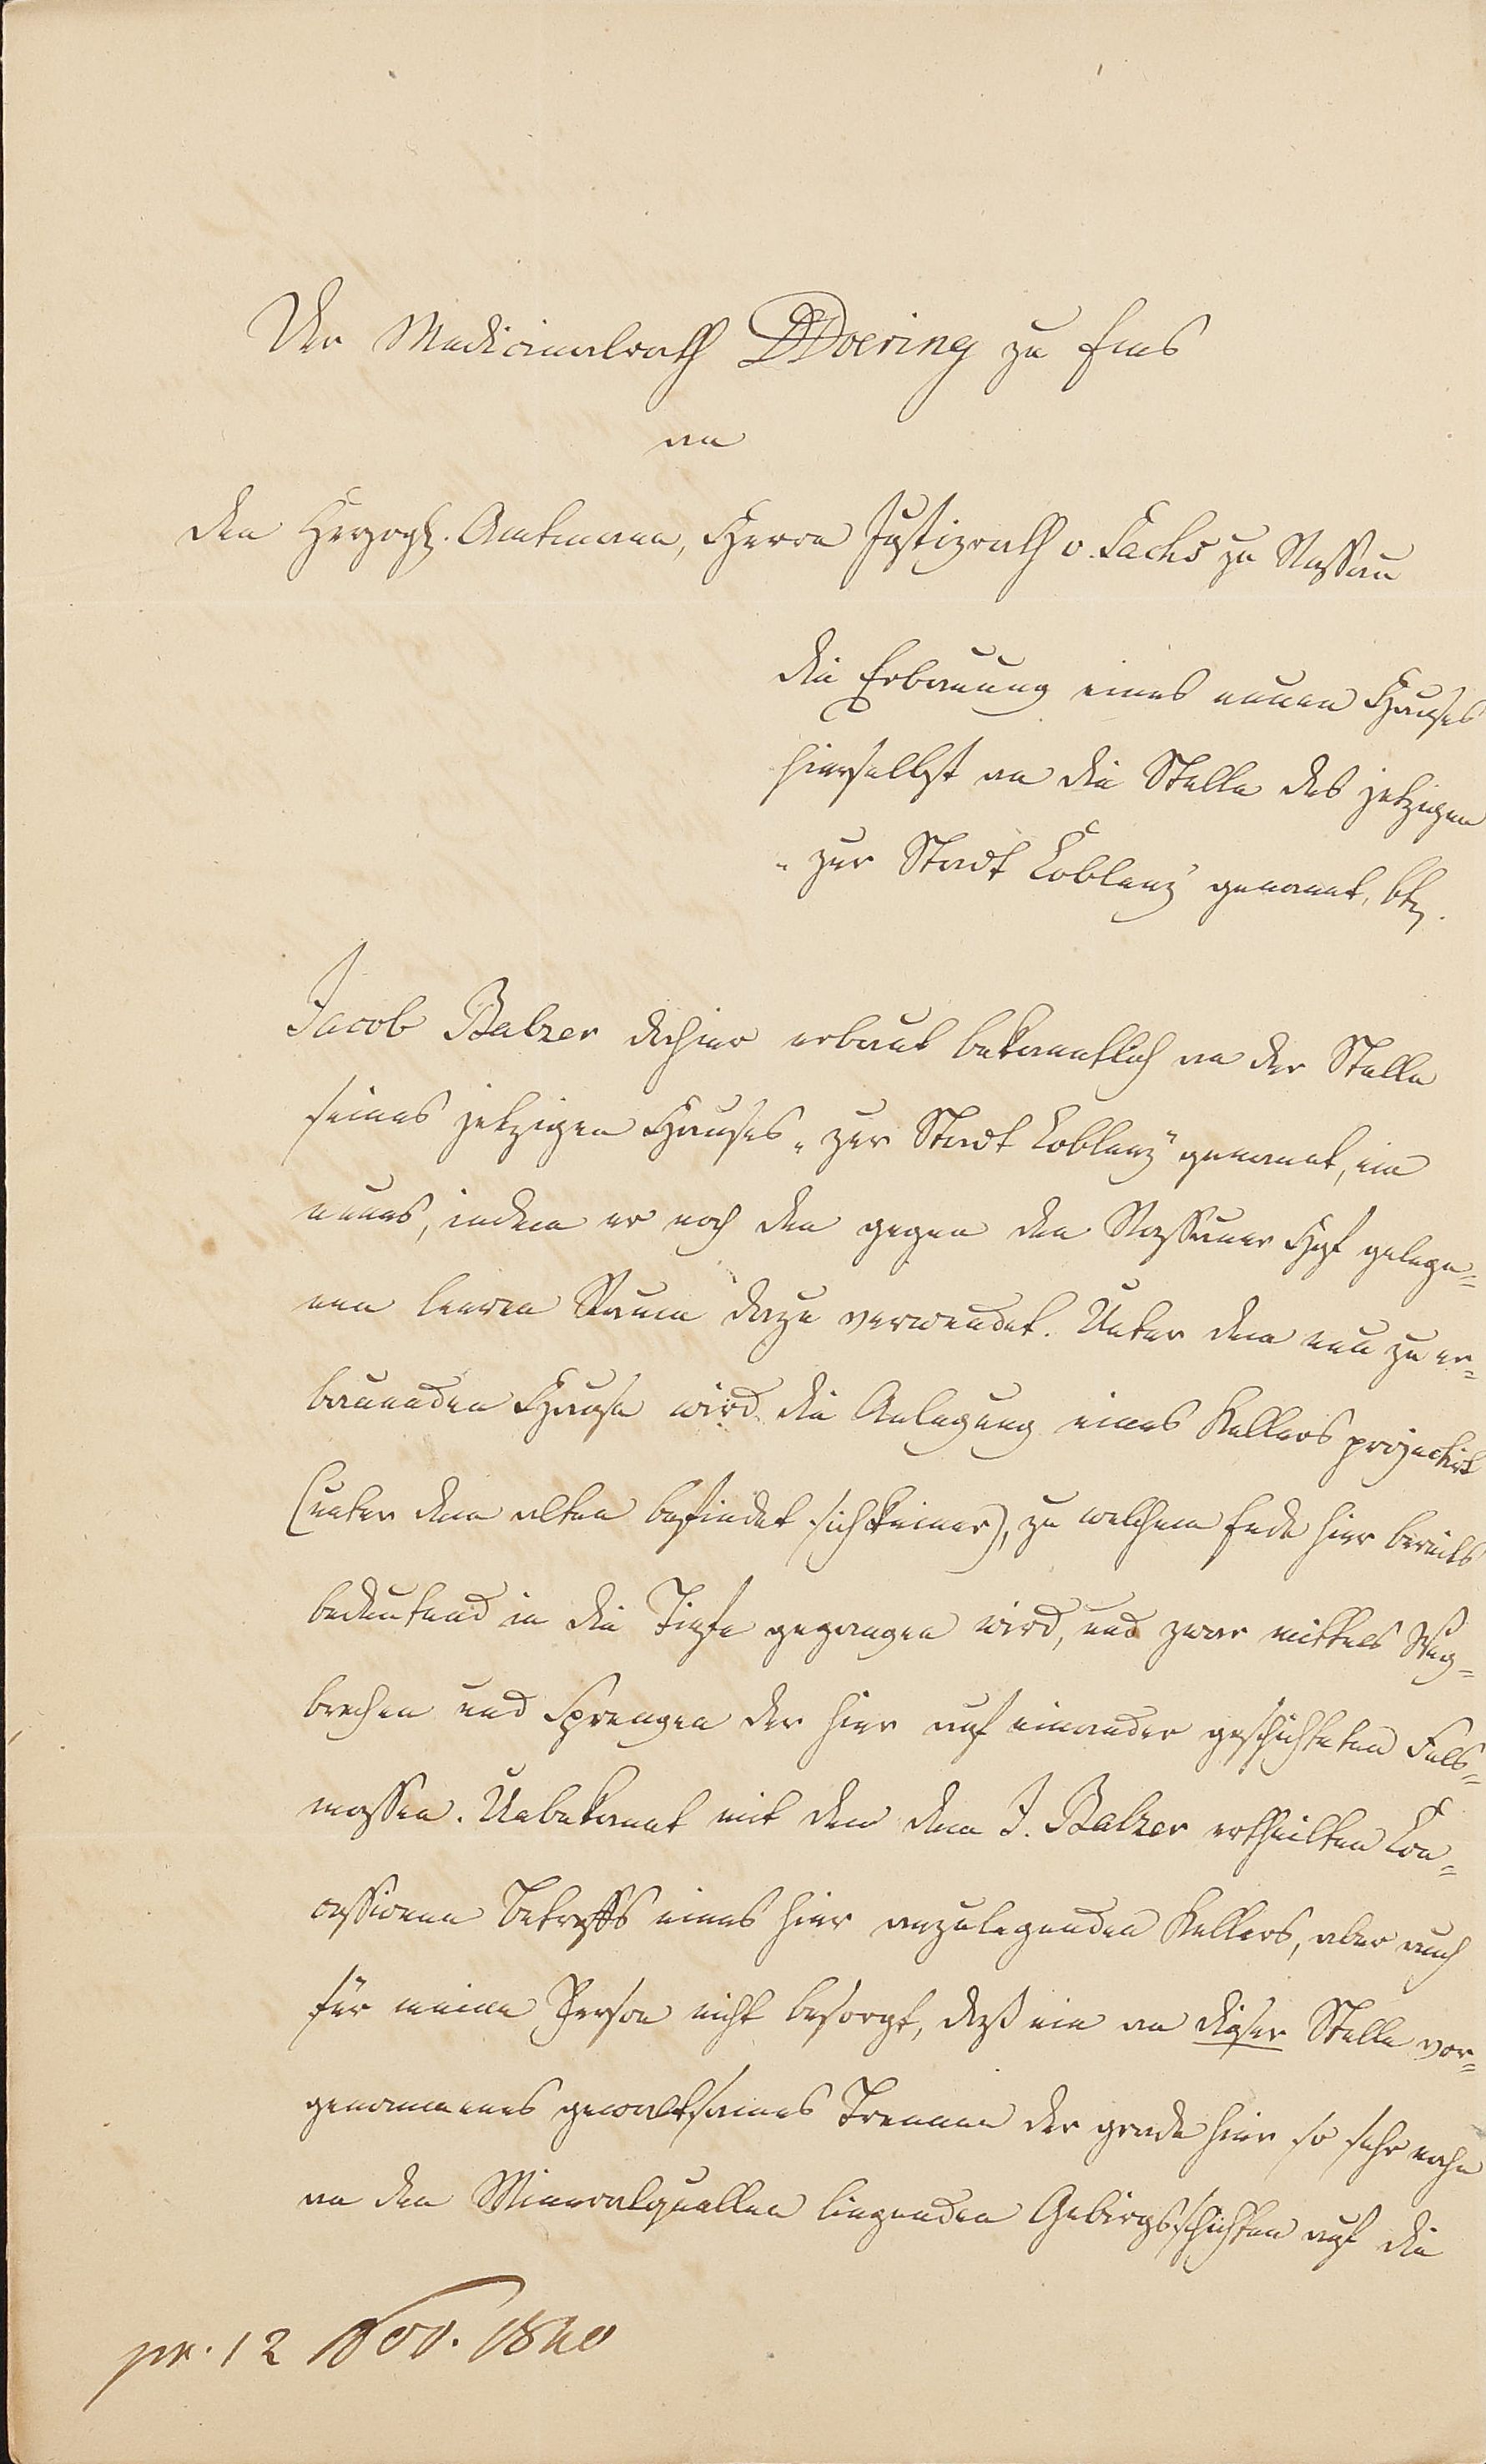 Der Medicinalrath Dr Doering zu Ems
an
den Herzogl. Amtmann, Herrn Justizrath v. Sachs zu Nassau
die Erbauung eines neuen Hauses
hierselbst an die Stelle des jetzigen
„zur Stadt Coblenz" genannt, btr.
Jacob Balzer dahier erbaut bekanntlich an der Stelle
seines jetzigen Hauses „zur Stadt Coblenz" genannt, ein
neues, indem er noch den gegen den Nassauer Hof gelege=
nen leeren Raum dazu verwendet. Unter dem neu zu er=
bauenden Hause wird die Anlegung eines Kellers projectirt
(unter dem alten befindet sich keiner), zu welchem Ende hier bereits
bedeutend in die Tiefe gegangen wird, und zwar mittels Weg=
brechen und Sprengen der hier auf einander geschichteten Fels=
massen. Unbekannt mit den dem J. Balzer ertheilten Con=
cessionen Betreffs eines hier anzulegenden Kellers, aber auch
für meine Person nicht besorgt, daß ein an dieser Stelle vor=
genommenes gewaltsames Trennen der grade hier so sehr nahe
an den Mineralquellen liegenden Gebirgsschichten auf die
pr. 12 Nov. 1840